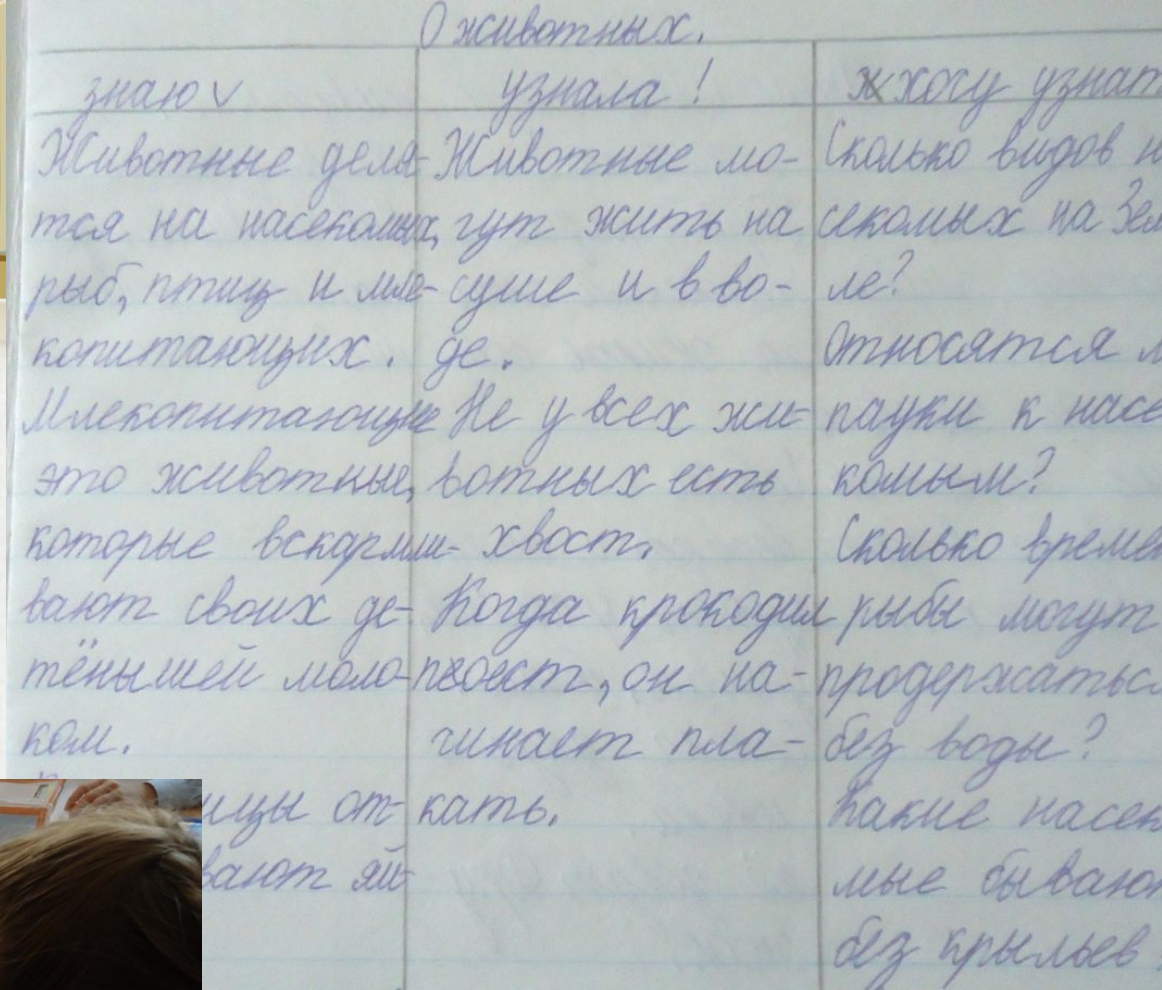 О животных.
знаю ✓
Животные деля-
тся на насекомых,
рыб, птиц и мле-
копитающих.
Млекопитающие
это животные,
которые вскармли-
вают своих де-
тёнышей моло-
ком.
ицы от-
вают яй-
узнала !
Животные мо-
гут жить на
суше и в во-
де.
Не у всех жи-
вотных есть
хвост.
Когда крокодил
поест, он на-
чинает пла-
кать.
хочу узнат
Сколько видов н
секомых на Зем
ле?
Относятся л
пауки к насе
комым?
Сколько време
рыбы могут
продержатьс
без воды?
Какие насек
мые бывают
без крыльев